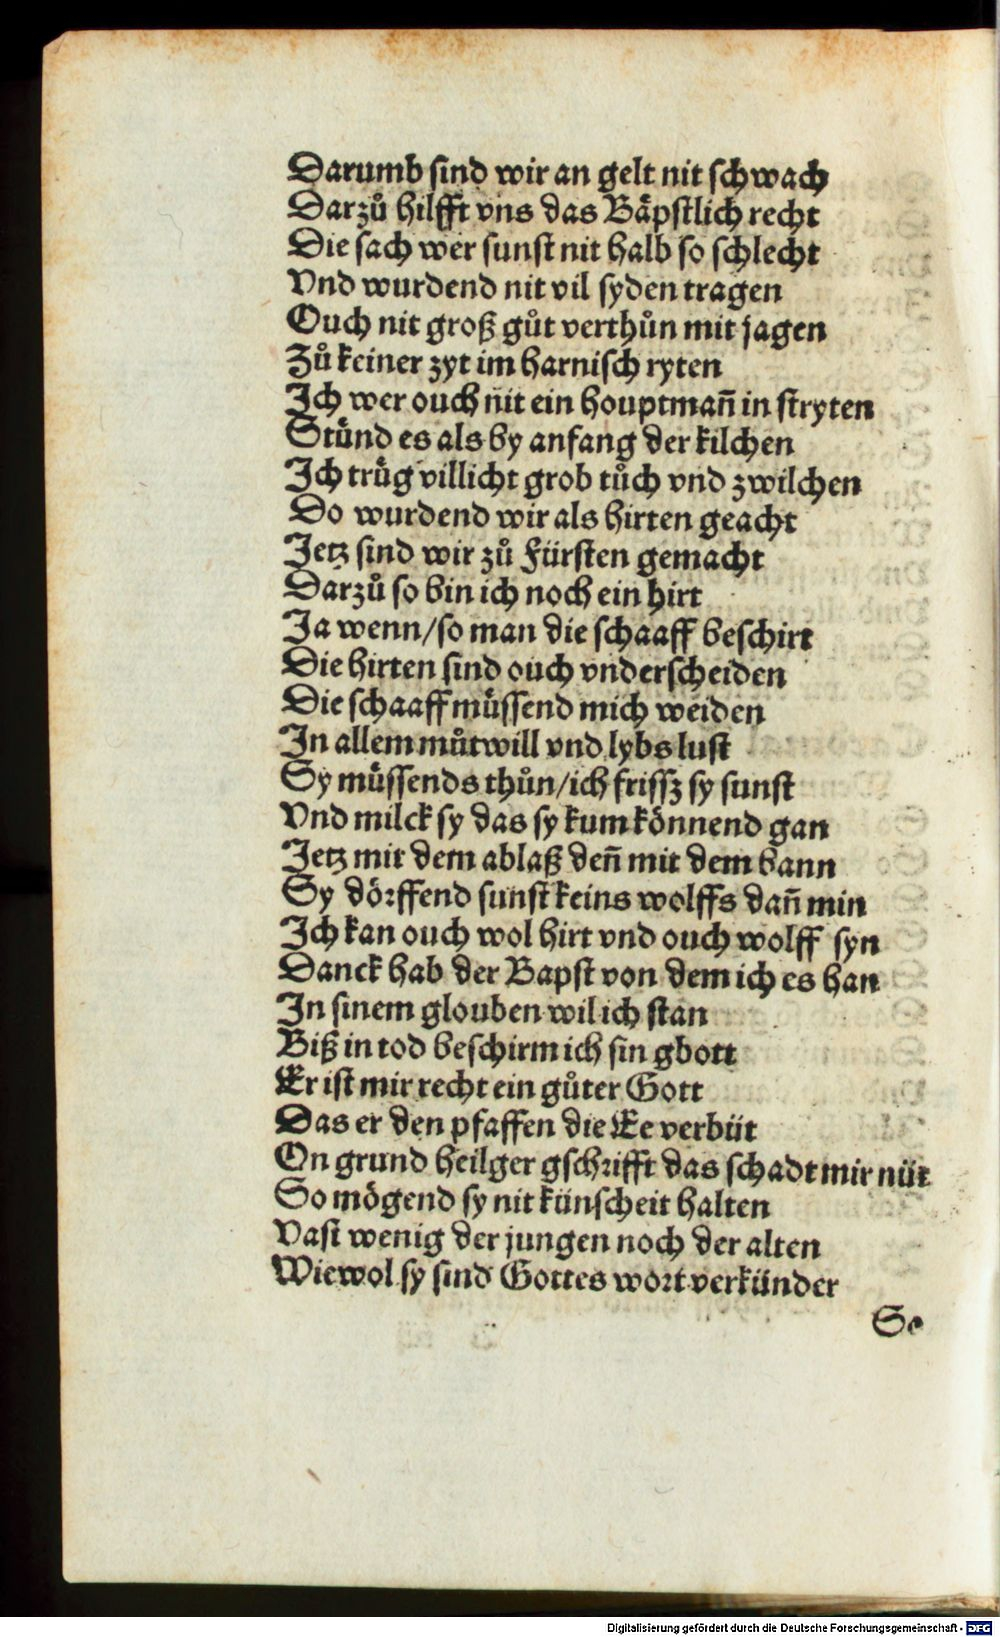 Darumb sind wir an gelt nit schwach
Darzuͦ hilfft vns das Baͤpstlich recht
Die sach wer sunst nit halb so schlecht
Vnd wurdend nit vil syden tragen
Ouch nit groß guͦt verthuͦn mit jagen
Zuͦ keiner zyt im harnisch ryten
Ich wer ouch nit ein houptman̄ in stryten
Stuͤnd es als by anfang der kilchen
Ich truͤg villicht grob tuͦch vnd zwilchen
Do wurdend wir als hirten geacht
Jetz sind wir zuͦ Fürsten gemacht
Darzuͦ so bin ich noch ein hirt
Ja wenn/so man die schaaff beschirt
Die hirten sind ouch vnderscheiden
Die schaaff muͤssend mich weiden
In allem muͦtwill vnd lybs lust
Sy muͤssends thuͦn/ich frissz sy sunst
Vnd milck sy das sy kum koͤnnend gan
Jetz mit dem ablaß den̄ mit dem bann
Sy doͤrffend sunst keins wolffs dan̄ min
Ich kan ouch wol hirt vnd ouch wolff syn
Danck hab der Bapst von dem ich es han
In sinem glouben wil ich stan
Biß in tod beschirm ich sin gbott
Er ist mir recht ein guͦter Gott
Das er den pfaffen die Ee verbüt
On grund heilger gschrifft das schadt mir nüt
So moͤgend sy nit künscheit halten
Vast wenig der jungen noch der alten
Wiewol sy sind Gottes wort verkünder
So
Digitalisierung gefördert durch die Deutsche Forschungsgemeinschaft - DFG